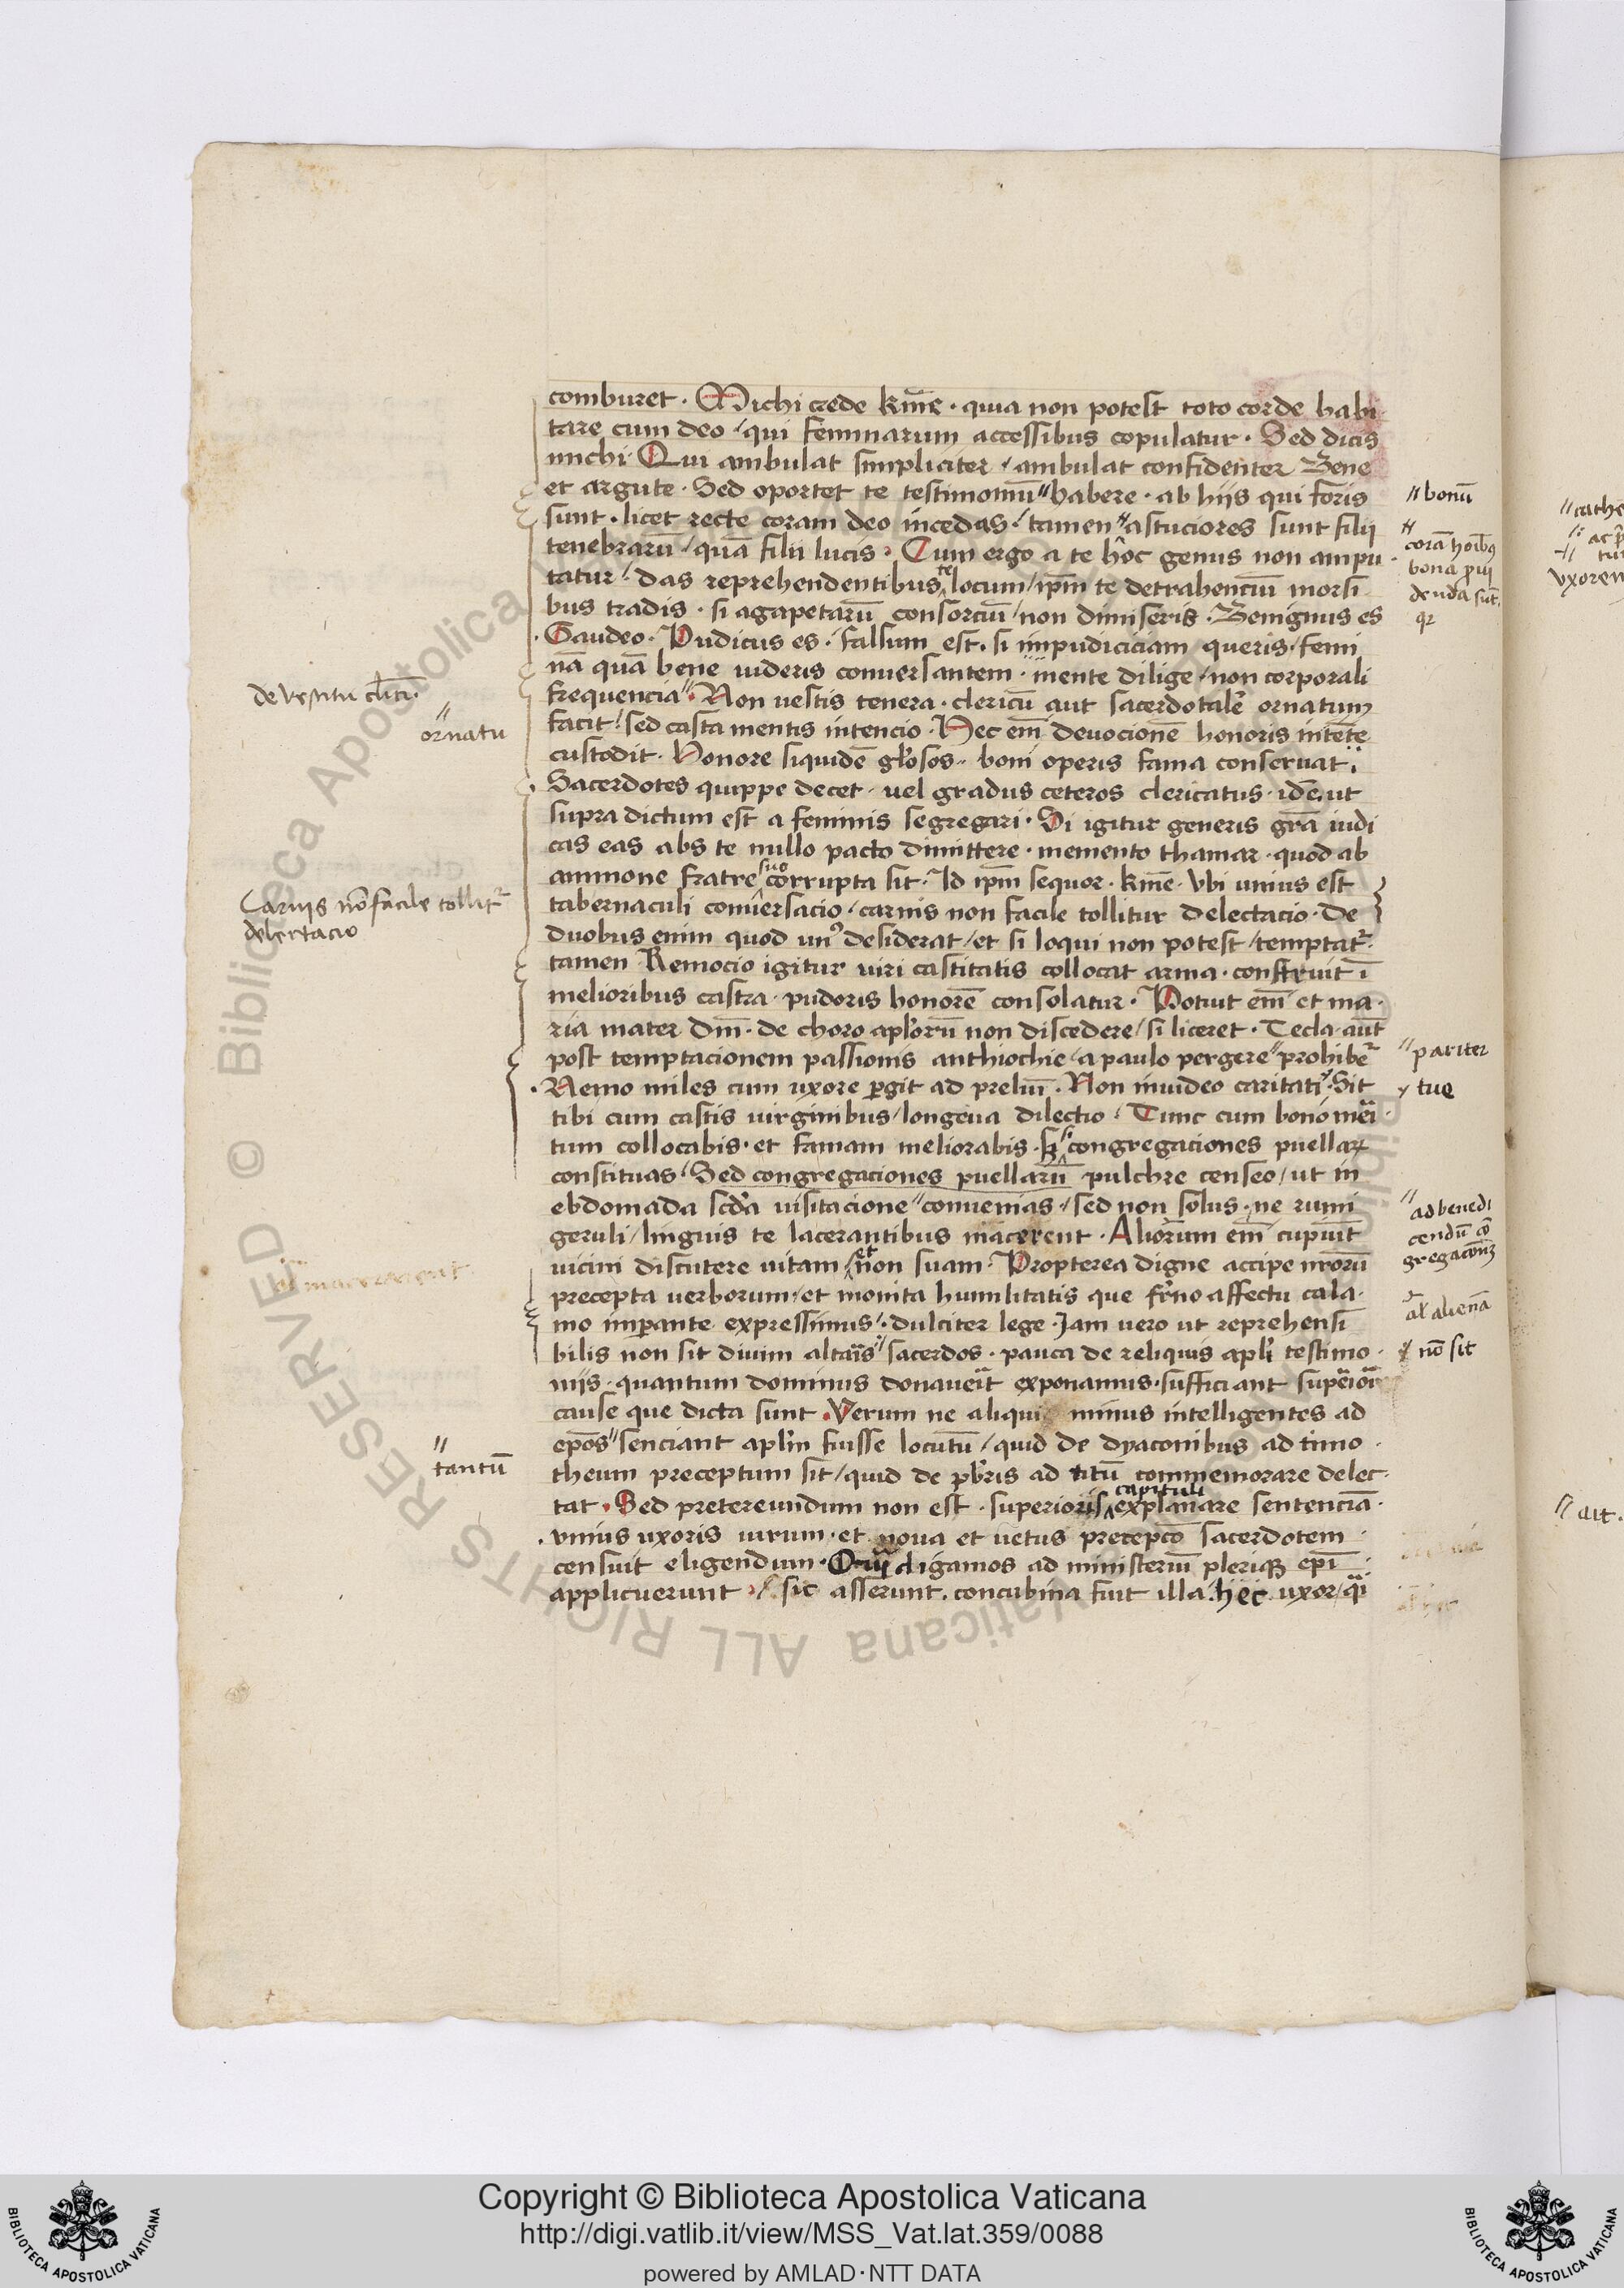 comburet · Michi crede kr̄me · quia non potest toto corde habi
tare cum deo / qui feminarum accessibus copulatur · Sed dicis
michi Qui ambulat simpliciter / ambulat confidenter Bene
et argute · Sed oportet te testimoniū " habere · ab hijs qui foris
sunt · licet recte coram deo incedas / tamen astuciores sunt filij
tenebrarū / quā filii lucis · Cum ergo a te hoc genus non ampu
tatur / das reprehendentibus te locum / ip̄m te detrahenciū morsi
bus tradis · si agapetarū consorciū / non dimiseris · Benignus es
Gaudeo · Pudicus es · falsum est · si impudiciciam queris / femi
nā quā bene uideris conuersantem · mente dilige / non corporali
frequencia " · Non vestis tenera · clericū aut sacerdotalē ornatum
facit / sed casta mentis intencio · Hec em̄ deuocionē honoris intēte
custodit · Honore siquidē gl'osos · boni operis fama conseruat ·
Sacerdotes quippe decet · uel gradus ceteros clericatus · idē ut
supra dictum est a feminis segregari · Si igitur generis gr̄a iudi
cas eas abs te nullo pacto dimittere · memento thamar · quod ab
ammone fratre suo corrupta sit · Id ip̄m sequor · kr̄me · Vbi unius est
tabernaculi conuersacio / carnis non facile tollitur delectacio · de
duobus enim quod un9 desiderat / et si loqui non potest / temptat̄r ·
tamen Remocio igitur uiri castitatis collocat arma · construit ī
melioribus castra · pudoris honorē consolatur · Potuit em̄ et ma
ria mater dn̄i · de choro apl'orū non discedere / si liceret · Tecla aut̄
post temptacionem passionis anthiochie / a paulo pergere " prohibet̄r
Nemo miles cum uxore ꝑgit ad preliū · Non inuideo caritati · Sit
tibi cum castis uirginibus / longeua dilectio · Tunc cum bono
tum collocabis · et famam meliorabis · si congregaciones puellaꝝ
constituas · Sed congregaciones puellarū pulchre censeo / ut in
ebdomada scd'a uisitacione " conuenias / sed non solus · ne rumi
geruli / linguis te lacerantibus macerent · Aliorum em̄ cupiūt
uicini discutere uitam et non suam · Propterea digne accipe nr̄orū
precepta uerborum · et monita humilitatis que fr̄no affectu cala
mo imꝑante expressimus / dulciter lege · Iam uero ut reprehensi
bilis non sit diuini altaris sacerdos · pauca de reliquis apl'i testimo
nijs · quantum dominus donauerit exponamus · sufficiant superiori
cause que dicta sunt · Verum ne aliqui minus intelligentes ad
ep̄os " senciant apl'm fuisse locutū / quid de dyaconibus ad timo
theum preceptum sit / quid de pb'ris ad titū commemorare delec
tat · Sed pretereundum non est · superioris capituli explanare sentenciā ·
vnius uxoris uirum · et noua et uetus precepco sacerdotem
censuit eligendum · digamos ad ministeriū pleriqꝫ ep̄i
applicuerunt / sic asserunt · concubina fuit illa · hec uxor / q̄i
de vestitu clici ·
" ornatu
Carnis nō facile tollit̄r
delectacio
" tantū
" bonū
corā hoībꝫ
bona pui
denda sūt
qꝛ
" pariter
tue
" ad benedi
cendū cō
gregacōnꝫ
al' alienā
nō sit
" cathe
uxorem
" ait ·
Copyright © Biblioteca Apostolica Vaticana
http://digi.vatlib.it/view/MSS_Vat.lat.359/0088
powered by AMLAD·NTT DATA
BIBLIOTECA APOSTOLICA VATICANA
BIBLIOTECA APOSTOLICA VATICANA
© Biblioteca Apostolica Vaticana ALL RIGHTS RESERVED